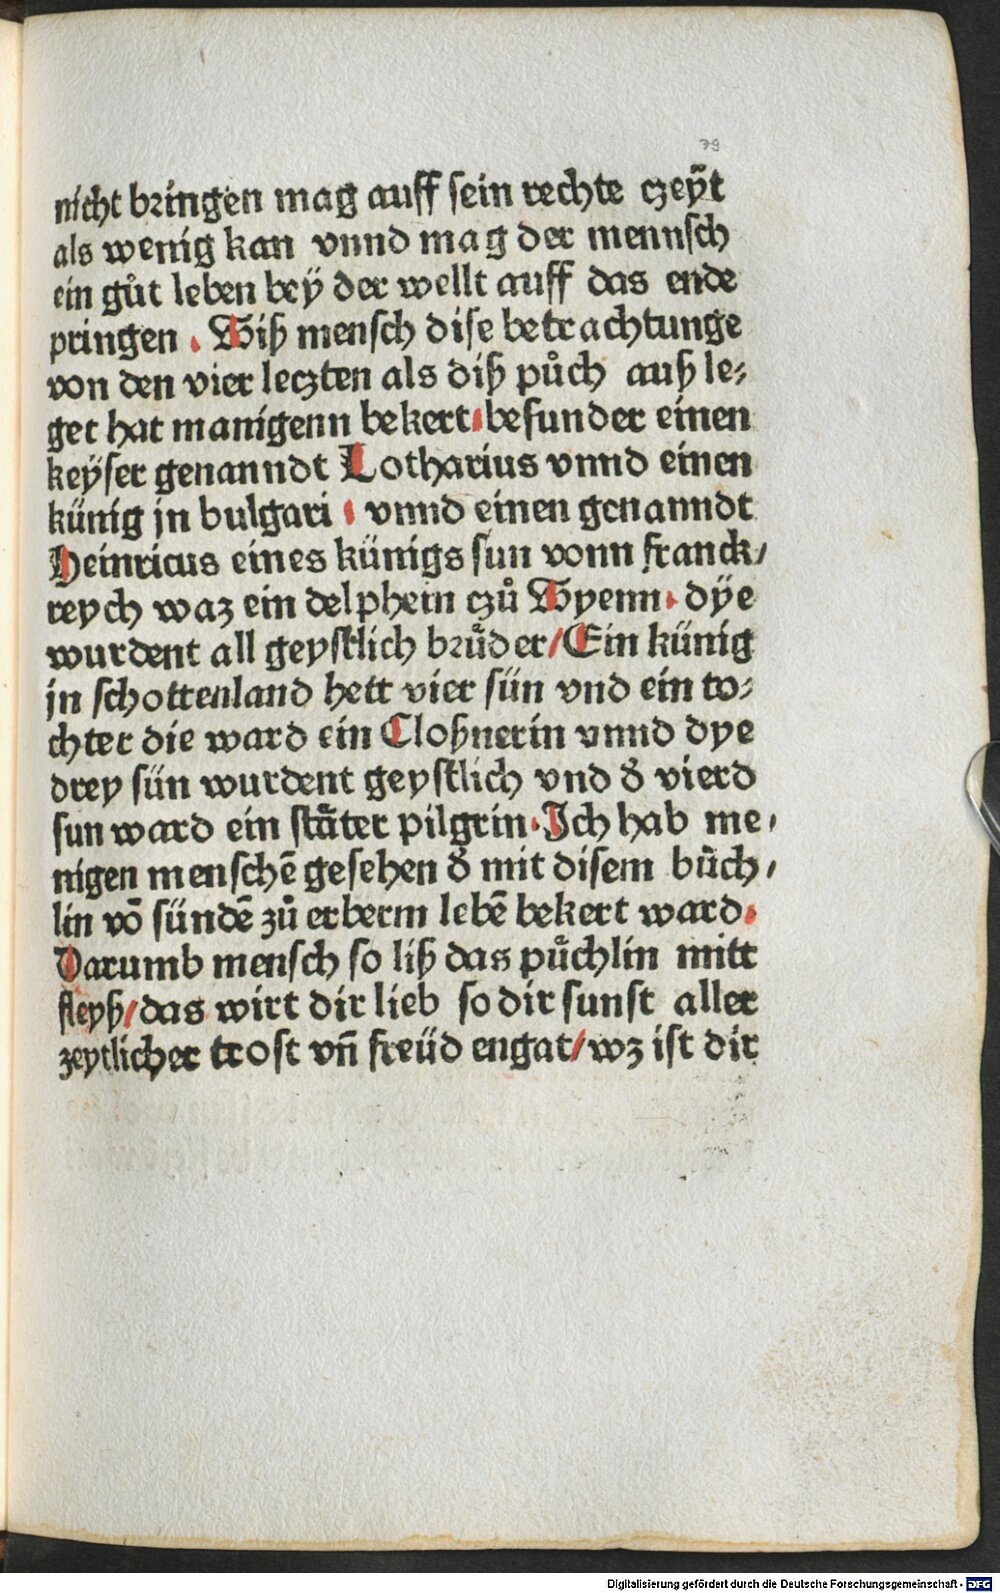 79
nicht bringen mag auff sein rechte czeÿt
als wenig kan vnnd mag der mennsch
ein gůt leben beÿ der wellt auff das ende
pringen . Wiß mensch dise betrachtunge
von den vier leczten als diß půch auß le⸗
get hat manigenn bekert·besunder einen
keÿser genanndt Lotharius vnnd einen
künig jn bulgari · vnnd einen genanndt
Heinricus eines künigs sun vonn franck/
reych waz ein delphein czů Wyenn· dÿe
wurdent all geystlich brůder/Ein künig
jn schottenland hett vier sün vnd ein to⸗
chter die ward ein Cloßnerin vnnd dye
drey sün wurdent geystlich vnd d̕ vierd
sun ward ein stäter pilgrin·Jch hab me/
nigen menschē gesehen d̕ mit disem bůch/
lin vō sündē zů erberm lebē bekert ward·
Darumb mensch so liß das půchlin mitt
fleyß/das wirt dir lieb so dir sunst aller
zeytlicher trost vn̄ freüd engat/wz ist dir
Digitalisierung gefördert durch die Deutsche Forschungsgemeinschaft - DFG